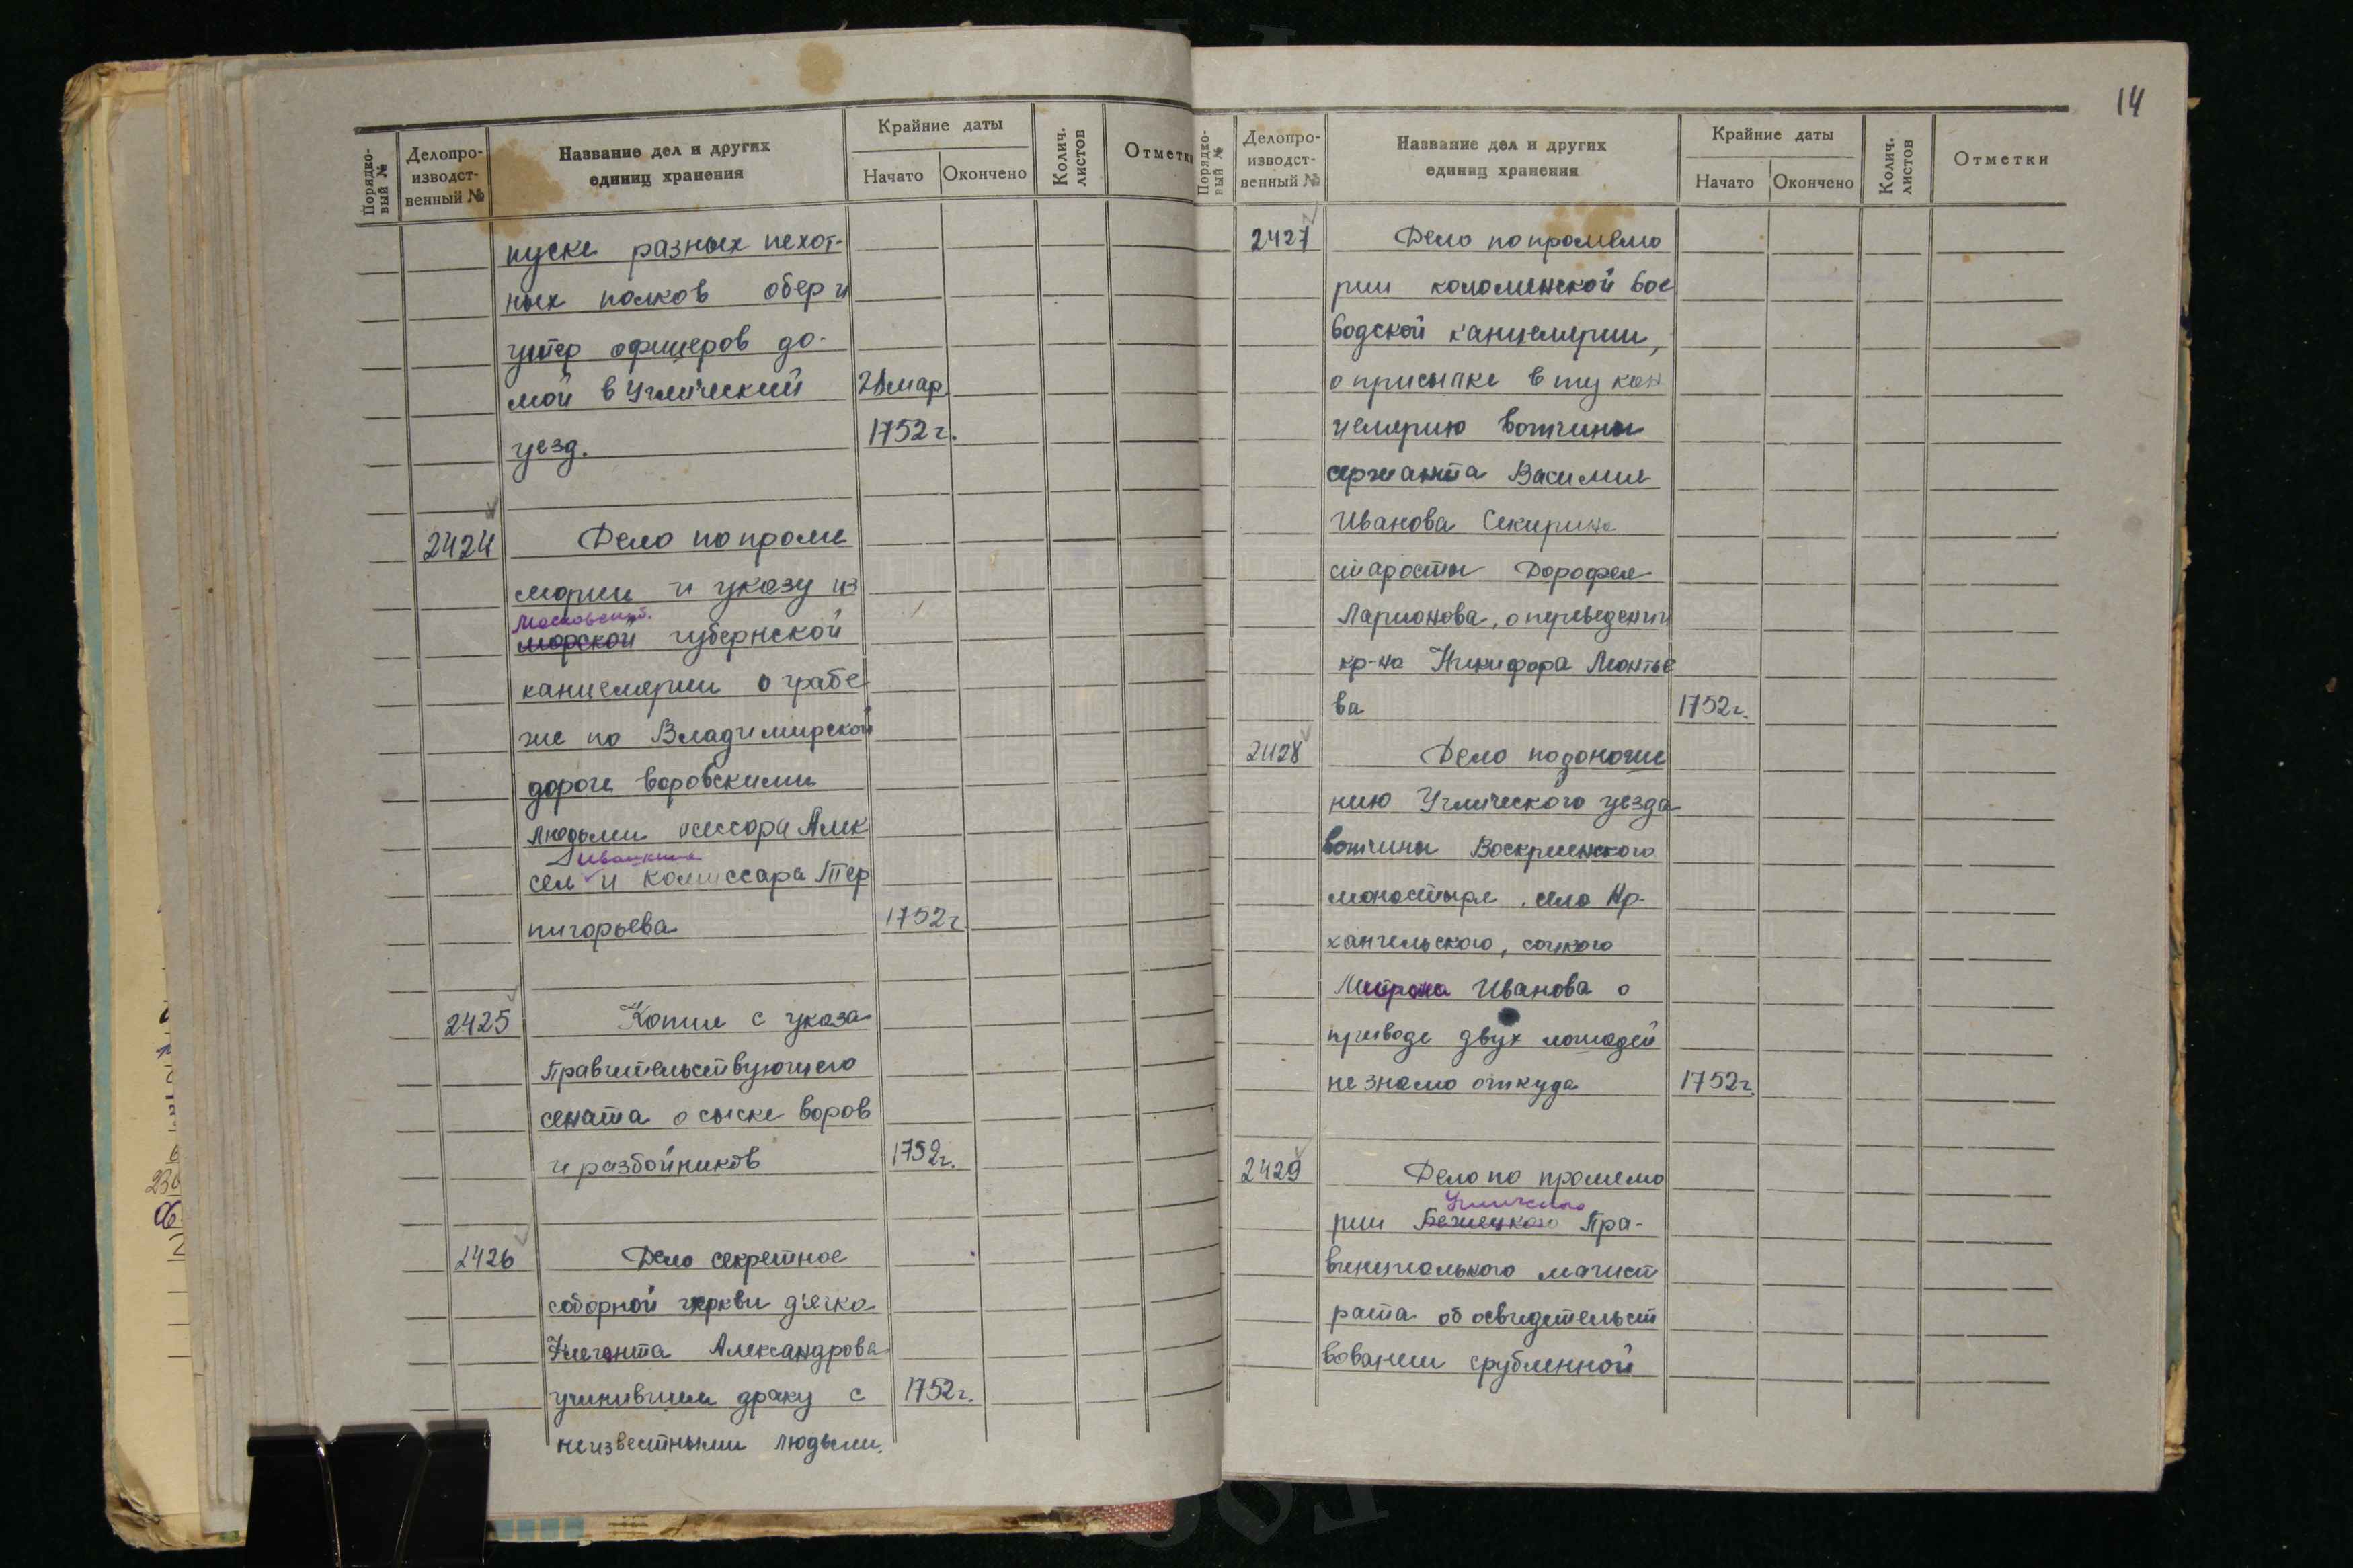 Порядко-
вый №
Делопро-
изводст-
венный №
Название дел и других
единиц хранения
Крайние даты
Начато
Окончено
Колич.
листов
Отметки
пуске разных пехот-
ных полков обер и
унтер офицеров до-
мой в Углический
уезд.
мар.
1752 г.
2424
Дело по проме
мории и указу из
Московской
морской губернской
канцелярии о грабе
же по Владимирской
дороге воровскими
людьми асессора Алек
сея и комиссара Тер
пигорьева
1752 г
2425
Копия с указа
Правительствующего
сената о сыске воров
и разбойников
1752 г.
2426
Дело секретное
соборной церкви дьячка
Александрова
учинившем драку с
1752 г.
неизвестными людьми.
14
Порядко-
вый №
Делопро-
изводст-
венный №
Название дел и других
единиц хранения
Крайние даты
Начато
Окончено
Колич.
листов
Отметки
2427
Дело по промемо
рии коломенской вое
водской канцелярии,
о присылке в ту кан
целярию вотчины
сержанта Василия
Иванова Секирина
старосты Дорофея
Ларионова, о переведении
кр-на Никифора Леонтье
ва
1752 г.
2428
Дело по доноше
нию Углического уезда
вотчины Воскресенского
монастыря, села Ар-
хангельского, соцкого
Митрона Иванова о
приводе двух лошадей
не знамо откуда
1752 г.
2429
Дело по промемо
Углического
рии Бежецкого Пра-
винциалького магист
рата об освидетельст
вовании срубленной